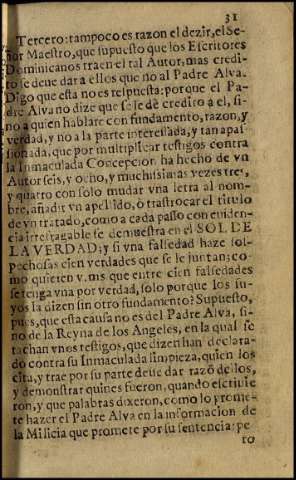 31
Tercero: tampoco es razon el dezir, el Se-
ñor Maestro, que supuesto que los Escritores
Dominicanos traen el tal Autor, mas credi-
to se deue dar a ellos que no al Padre Alva.
Digo que esta no es respuesta: porque el Pa-
dre Alva no dize que se lè dè credito a el, si-
no a quien hablare con fundamento, razon, y
verdad, y no a la parte interessada, y tan apas-
sionada, que por multiplicar testigos contra
la Inmaculada Concepcion ha hecho de vn
Autor seis, y ocho, y muchisimas vezes tres,
y quatro con solo mudar vna letra al nom-
bre, añadir vn apellido, ò trastrocar el titulo
de vn tratado, como a cada passo con euiden-
cia irrefragable se demuestra en el SOL DE
LA VERDAD; y si vna falsedad haze sos-
pechosas cien verdades que se le juntan; co-
mo quieren v.ms que entre cien falsedades
se tenga vna por verdad, solo porque los su-
yos la dizen sin otro fundamento? Supuesto,
pues, que esta causa no es del Padre Alva, si-
no de la Reyna de los Angeles, en la qual se
tachan vnos testigos, que dizen han declara-
do contra su Inmaculada limpieza, quien los
cita, y trae por su parte deue dar razõ de los,
y demonstrar quines fueron, quando escriuie
ron, y que palabras dixeron, como lo prome-
te hazer el Padre Alva en la informacion de
la Milicia que promete por su sentencia: pe
ro